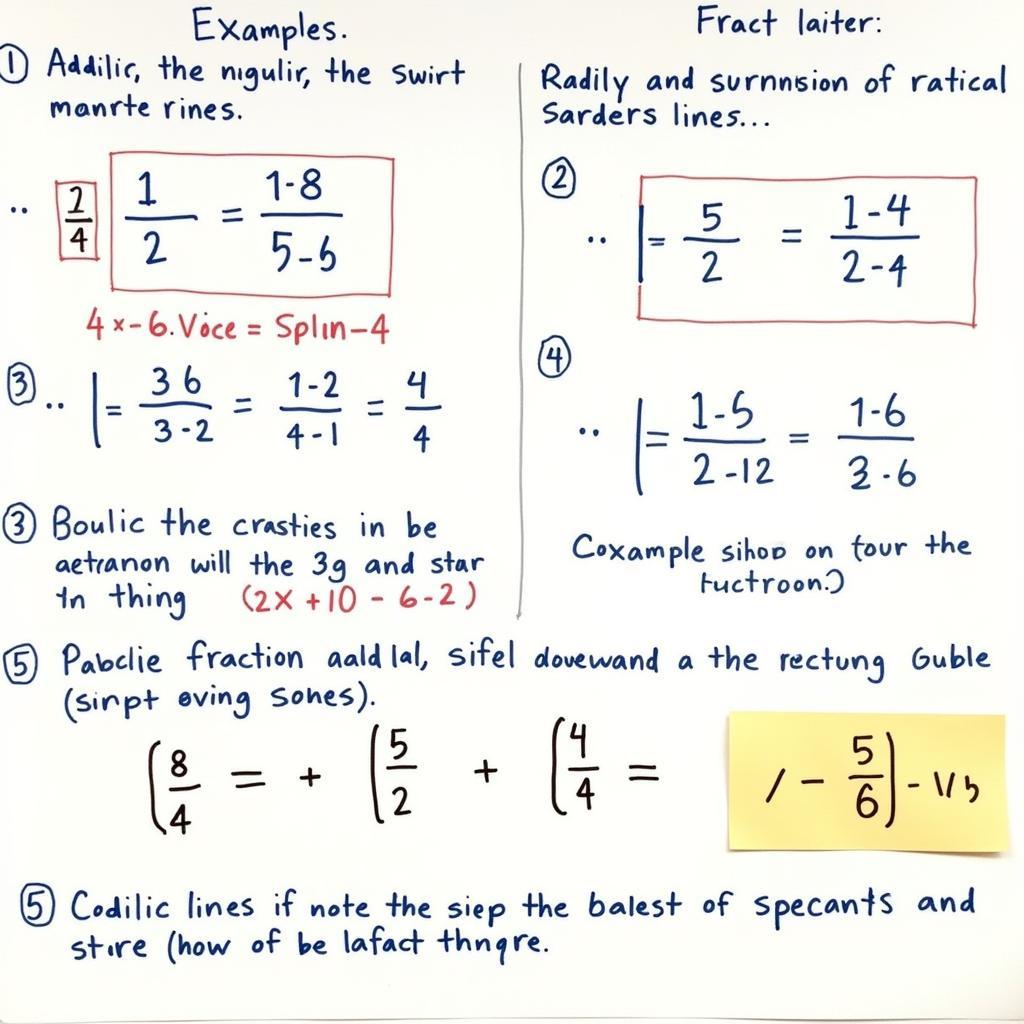 Examples.
① Addilic, the nıgulir, the swirt
manrte rines.
.. 2/4 1/2 = 1-8/5-6
4 x-6. Voce = Splın-4
③ .. |= 3 6/3-2 = 1-2/4-1 = 4/4
③ Boulic the crasties in be
aetranon will the 3g and star
tn thing (2X +10 - 6-2)
Fract laiter:
Radily and surnnsion of ratical
Sarders lines...
②
.. |= 5/2 = 1-4/2-4
④
.. |= 1-5/2-12 = 1-6/3-6
Coxample sihop on four the
tuctroon.)
⑤ Pabclie fraction aald lal, sifel dovewand a the rectung Guble
(sinpt oving sones).
(8/4 = + (5/2 + (4/4 = / - 5/6) -
⑤ Codilic lines if note the siep the balest of specants and
stire (how of be lafact thngre.